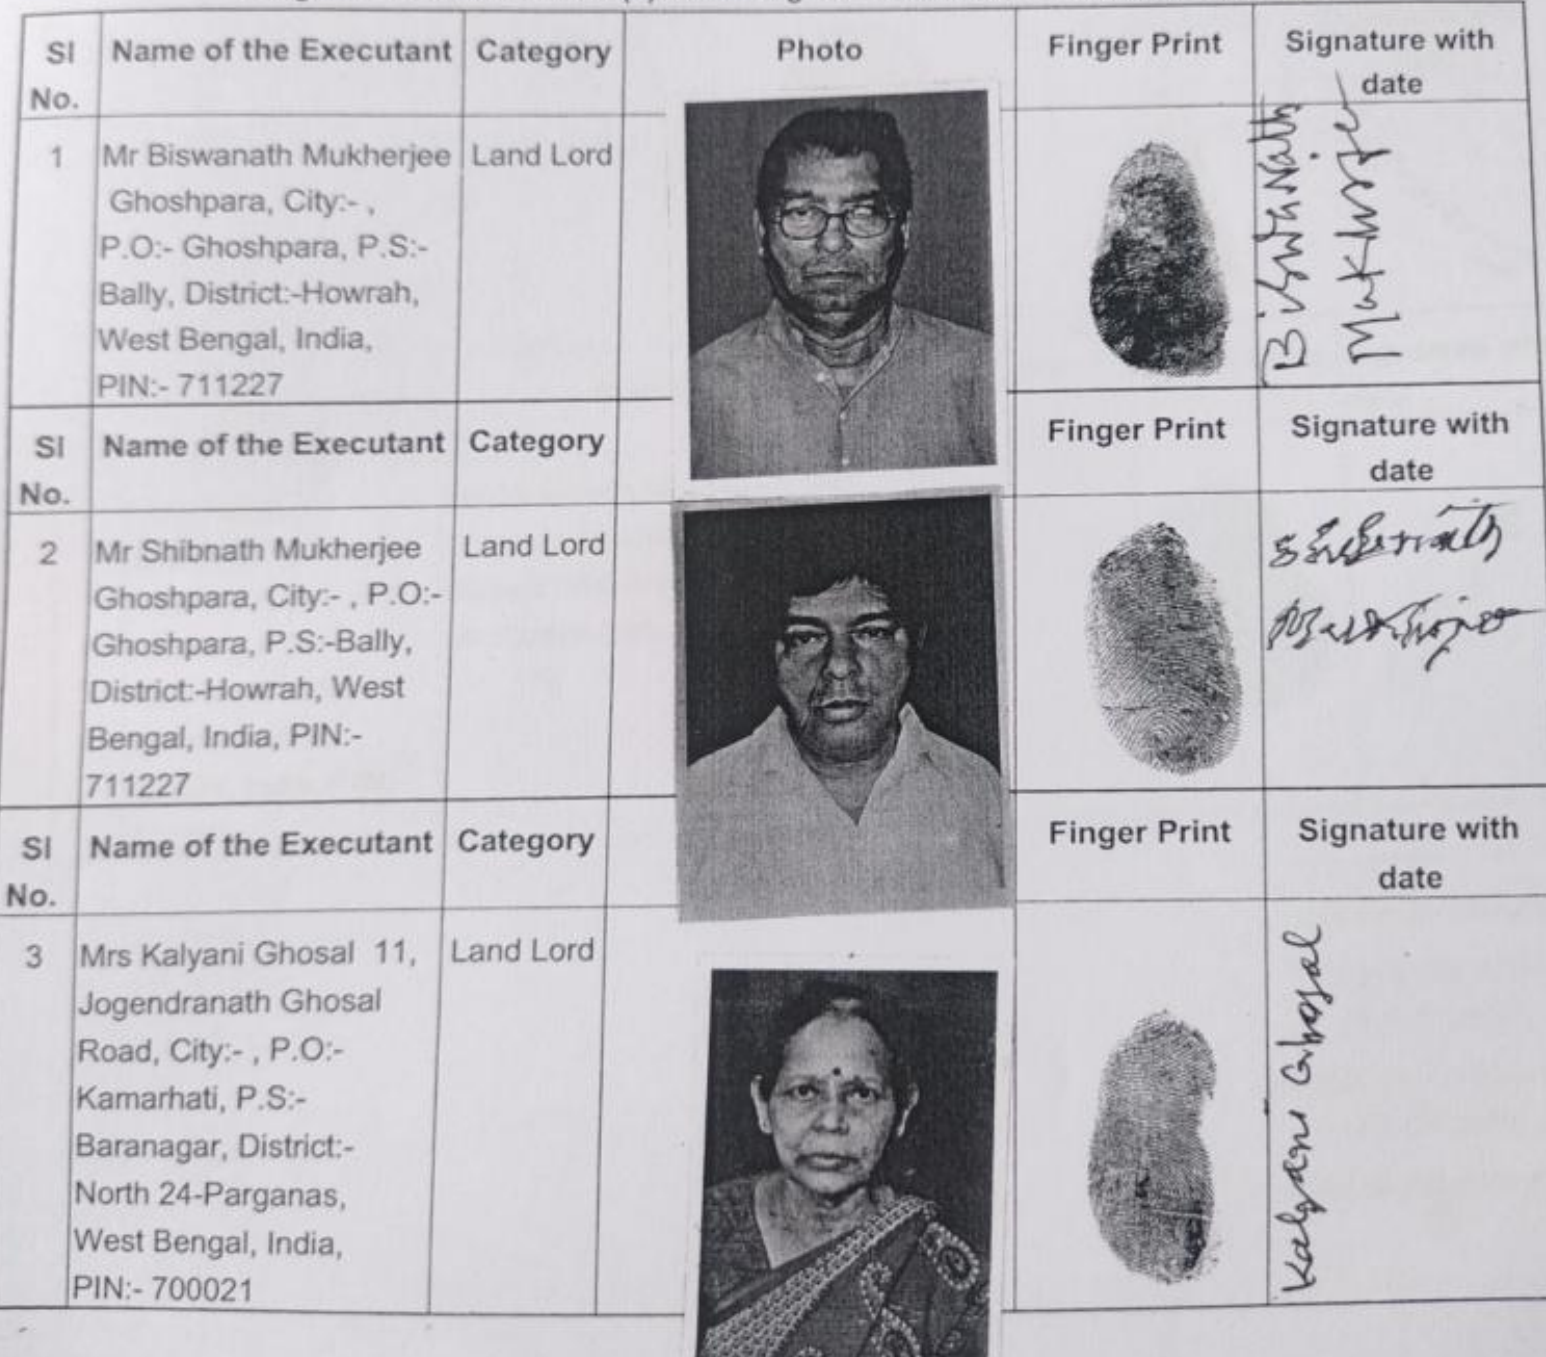 Sl No.
Name of the Executant
Category
Photo
Finger Print
Signature with date
1
Mr Biswanath Mukherjee
Ghoshpara, City:- ,
P.O:- Ghoshpara, P.S:-
Bally, District:-Howrah,
West Bengal, India,
PIN:- 711227
Land Lord
Biswanath
Mukherjee
Sl No.
Name of the Executant
Category
Finger Print
Signature with date
2
Mr Shibnath Mukherjee
Ghoshpara, City:- , P.O:-
Ghoshpara, P.S:-Bally,
District:-Howrah, West
Bengal, India, PIN:-
711227
Land Lord
Sl No.
Name of the Executant
Category
Finger Print
Signature with date
3
Mrs Kalyani Ghosal 11,
Jogendranath Ghosal
Road, City:- , P.O:-
Kamarhati, P.S:-
Baranagar, District:-
North 24-Parganas,
West Bengal, India,
PIN:- 700021
Land Lord
Kalyani Ghosal